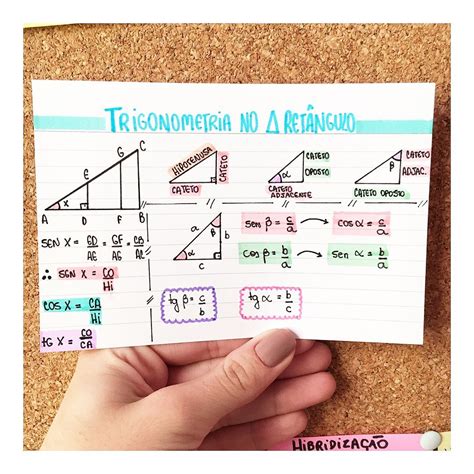 TRIGONOMETRIA NO Δ RETÂNGULO
C
G
E
x
A D F B
HIPOTENUSA
CATETO
CATETO
CATETO
OPOSTO
α
CATETO
ADJACENTE
CATETO
ADJAC.
β
CATETO OPOSTO
SEN X = GD/AG = GF/AG =
∴ SEN X = CO/Hi
COS X = CA/Hi
TG X = CO/CA
a
β
b
α
c
sen β = c/a → cos α = c/a
cos β = b/a → sen α = b/a
tg β = c/b
tg α = b/c
HIBRIDIZAÇÃO